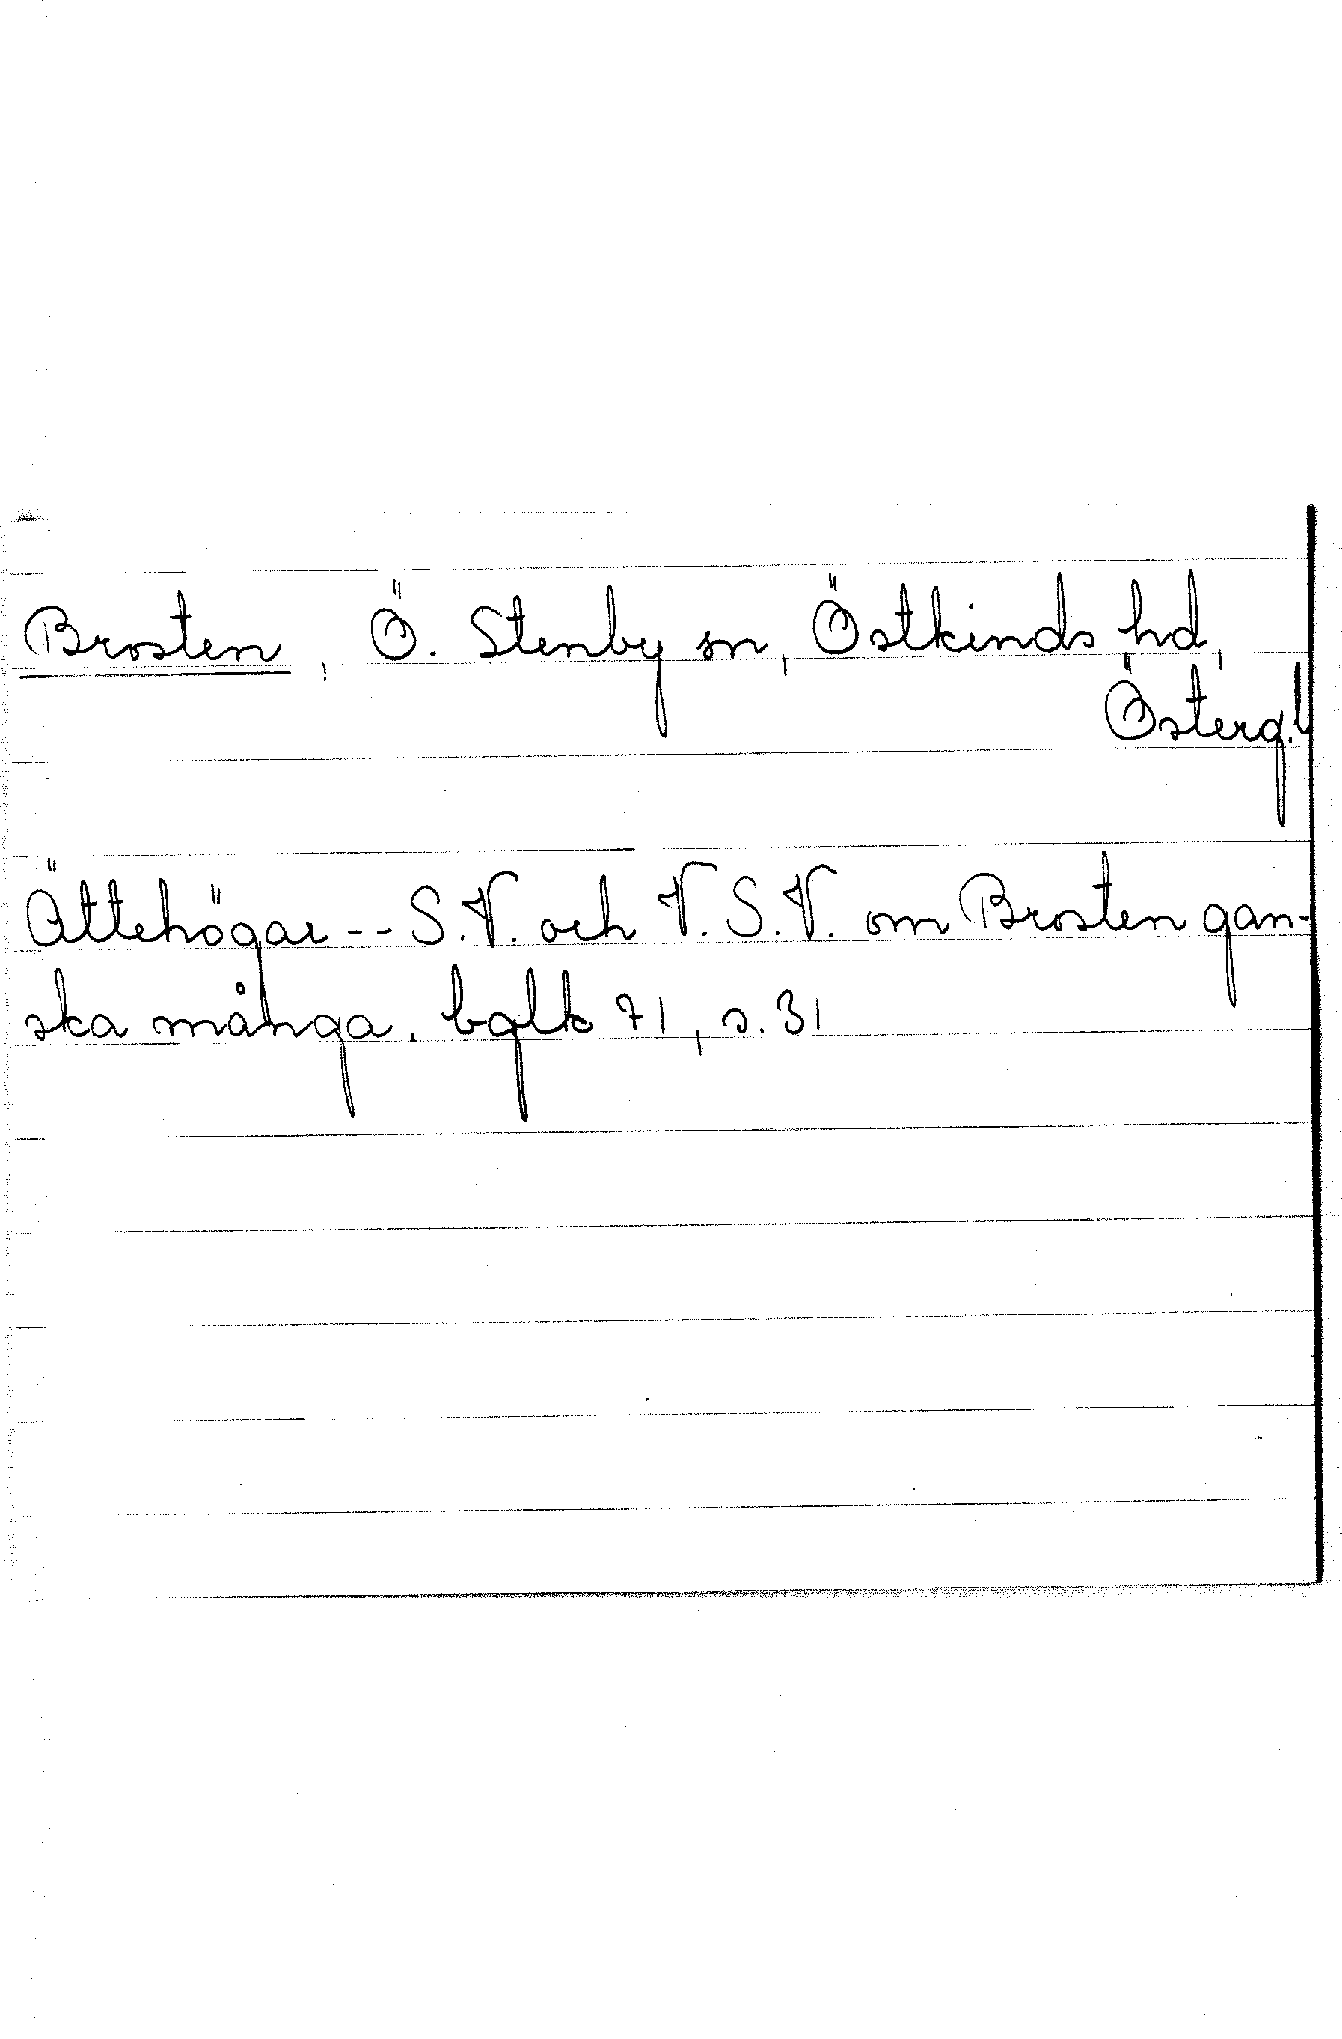 Brosten, Ö. Stenby sn, Östkinds hd,
Österg.l
Ättehögar -- S.V. och V.S.V. om Brosten gan-
ska många. bglk 71, s. 31